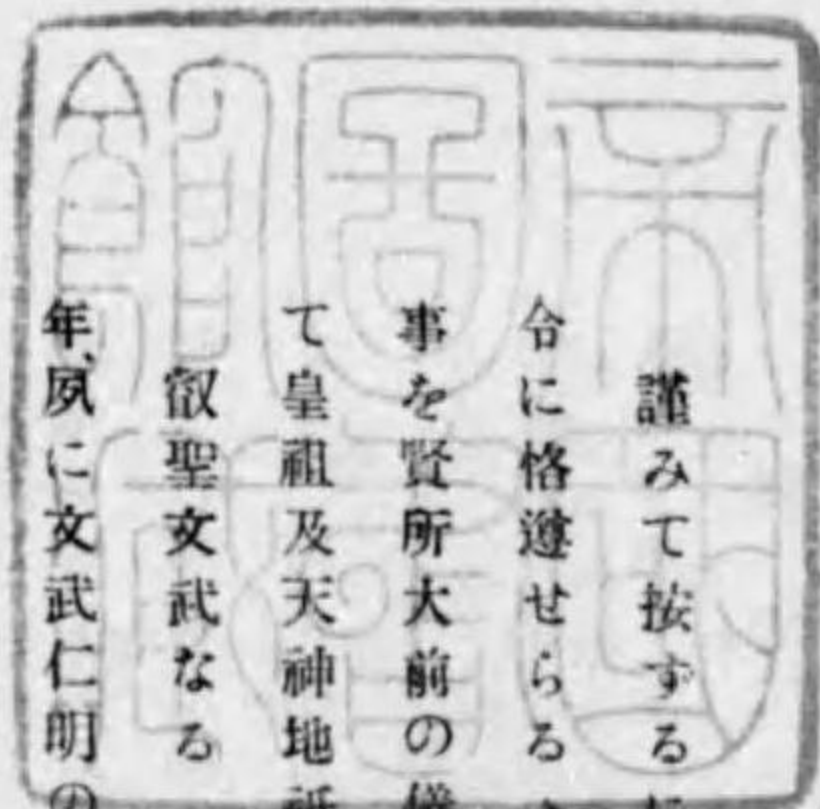 謹みて按ずるに
令に恪遵せらる
事を賢所大前の儀
て皇祖及天神地祇
叡聖文武なる
年、夙に文武仁明の